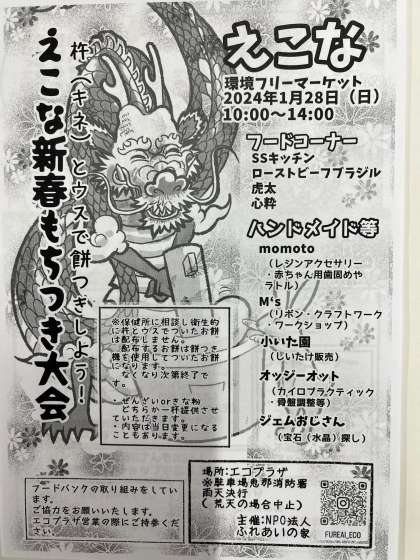 えこな
環境フリーマーケット
2024年1月28日（日）
10:00～14:00
フードコーナー
SSキッチン
ローストビーフブラジル
虎太
心粋
ハンドメイド等
momoto
（レジンアクセサリー
・赤ちゃん用歯固めや
ラトル）
M's
（リボン・クラフトワーク
・ワークショップ）
小いた園
（しいたけ販売）
オッジーオット
（カイロプラクティック
・骨盤調整等）
ジェムおじさん
（宝石（水晶）探し）
杵（キネ）とウスで餅つきしよう！
えこな新春もちつき大会
※保健所に相談し衛生的
に杵とウスでついたお餅
は配布しません。
配布するお餅は餅つき
機を使用してついたお餅
になります。
なくなり次第終了で
す。
・ぜんざいorきな粉
どちらか一杯提供させ
ていただきます。
・内容は当日変更になる
こともあります。
フードバンクの取り組みをしてい
ます。
ご協力をお願いいたします。
エコプラザ営業の際にご持参くだ
さい。
場所:エコプラザ
※駐車場恵那消防署
雨天決行
（荒天の場合中止）
主催:NPO法人
ふれあいの家
FUREAI_ECO